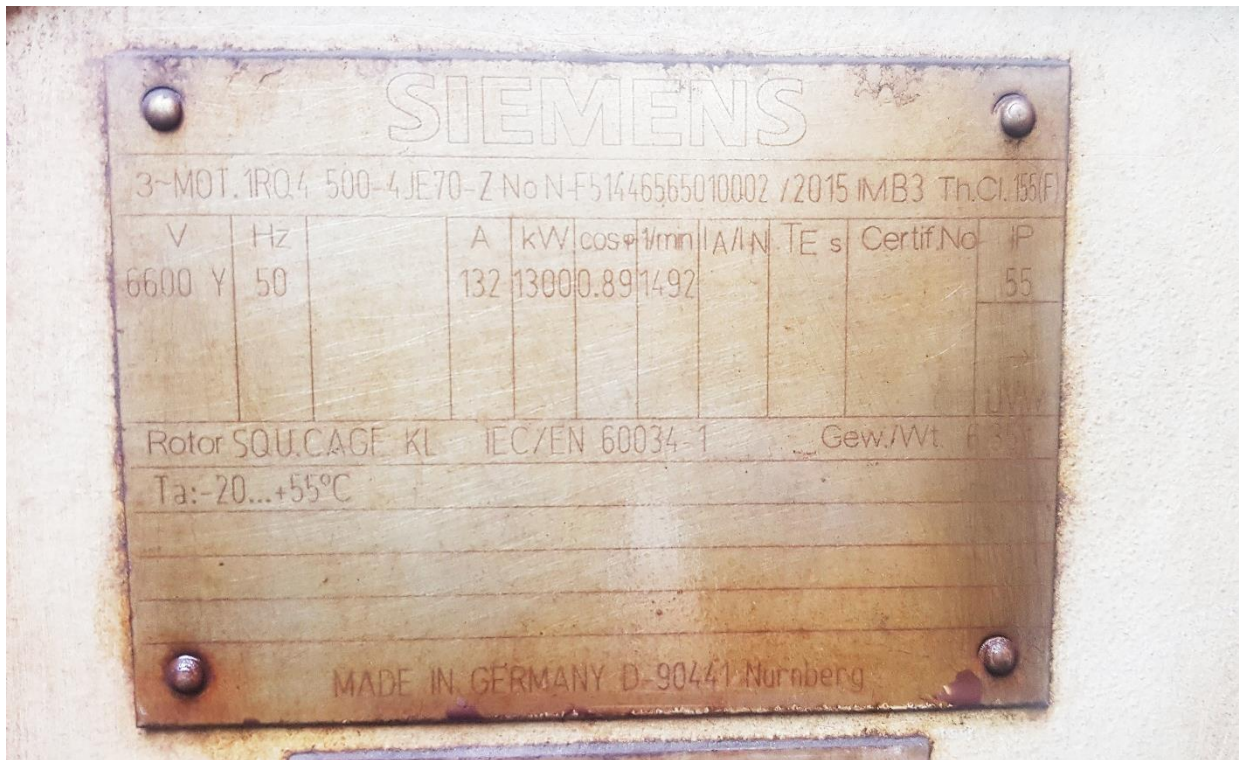 SIEMENS
3~MOT. 1RQ4 500-4JE70-Z No N-F51446565010002 /2015 IMB3 Th.Cl. 155(F)
V Hz A kW cosφ 1/min IA/IN TE s Certif.No IP
6600 Y 50 132 1300 0.89 1492 55
→
UVW
Rotor SQU.CAGE KL IEC/EN 60034-1 Gew./Wt.
Ta:-20...+55°C
MADE IN GERMANY D-90441 Nürnberg